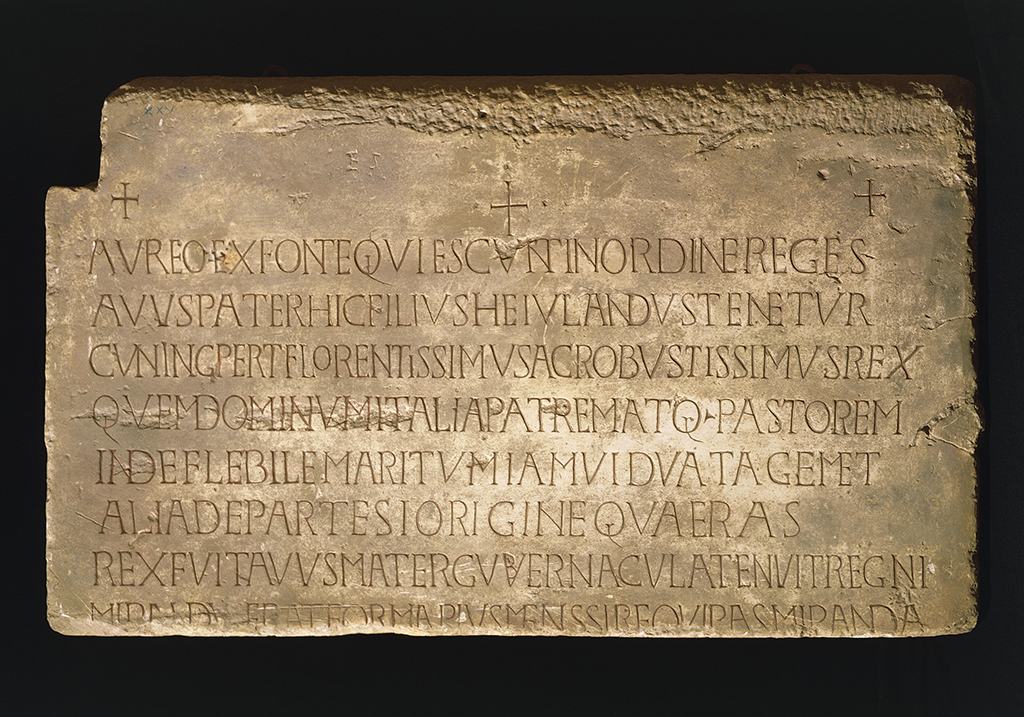 ✝ ✝ ✝
AVREO·EXFONTEQVIESCVNTINORDINEREGES
AVVSPATERHICFILIVSHEIVLANDVSTENETVR
CVNINGPERTFLORENTISSIMVSACROBVSTISSIMVSREX
QVEMDOMINVMITALIAPATREMATQ·PASTOREM
INDEFLEBILEMARITVMIAMVIDVATAGEMET
ALIADEPARTESIORIGINEQVAERAS
REXFVITAVVSMATERGVBERNACVLATENVITREGNI
MIRANDVSERATFORMAPIVSMENSSIREQVIRASMIRANDA